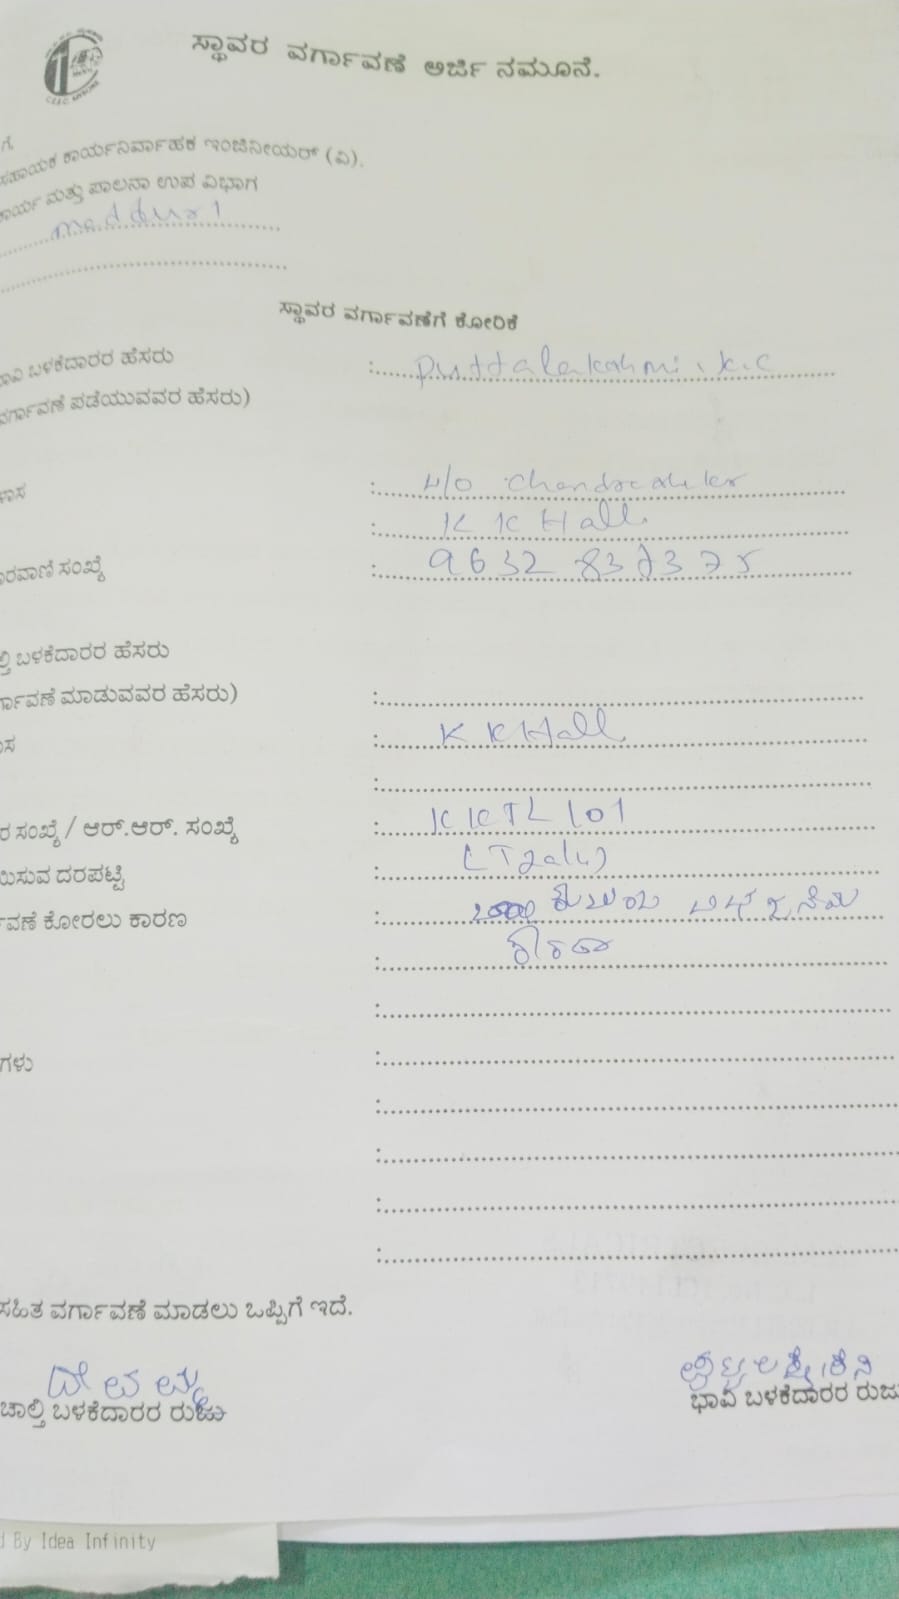 ಸ್ಥಾವರ ವರ್ಗಾವಣೆ ಅರ್ಜಿ ನಮೂನೆ.
C.E.S.C. MYSORE
ಗೆ,
ಸಹಾಯಕ ಕಾರ್ಯನಿರ್ವಾಹಕ ಇಂಜಿನೀಯರ್ (ವಿ),
ಕಾರ್ಯ ಮತ್ತು ಪಾಲನಾ ಉಪ ವಿಭಾಗ
maddur 1
ಸ್ಥಾವರ ವರ್ಗಾವಣೆಗೆ ಕೋರಿಕೆ
ಭಾವಿ ಬಳಕೆದಾರರ ಹೆಸರು : Puttalakshmi . K.C
ವರ್ಗಾವಣೆ ಪಡೆಯುವವರ ಹೆಸರು)
ಳಾಸ : W/O Chandrashekar
: K K Halli
ೂರವಾಣಿ ಸಂಖ್ಯೆ :
ಲ್ತಿ ಬಳಕೆದಾರರ ಹೆಸರು
ರ್ಗಾವಣೆ ಮಾಡುವವರ ಹೆಸರು) :
ಾಸ : K K Halli
:
ರ ಸಂಖ್ಯೆ / ಆರ್.ಆರ್. ಸಂಖ್ಯೆ : KKTL 101
ಯಿಸುವ ದರಪಟ್ಟಿ :
ವಣೆ ಕೋರಲು ಕಾರಣ :
:
:
ಗಳು :
:
:
:
:
ಸಹಿತ ವರ್ಗಾವಣೆ ಮಾಡಲು ಒಪ್ಪಿಗೆ ಇದೆ.
ದೇವಮ್ಮ
ಚಾಲ್ತಿ ಬಳಕೆದಾರರ ರುಜು
ಪುಟ್ಟಲಕ್ಷ್ಮಿ.ಕೆ.ಸಿ
ಭಾವಿ ಬಳಕೆದಾರರ ರುಜು
d By Idea Infinity